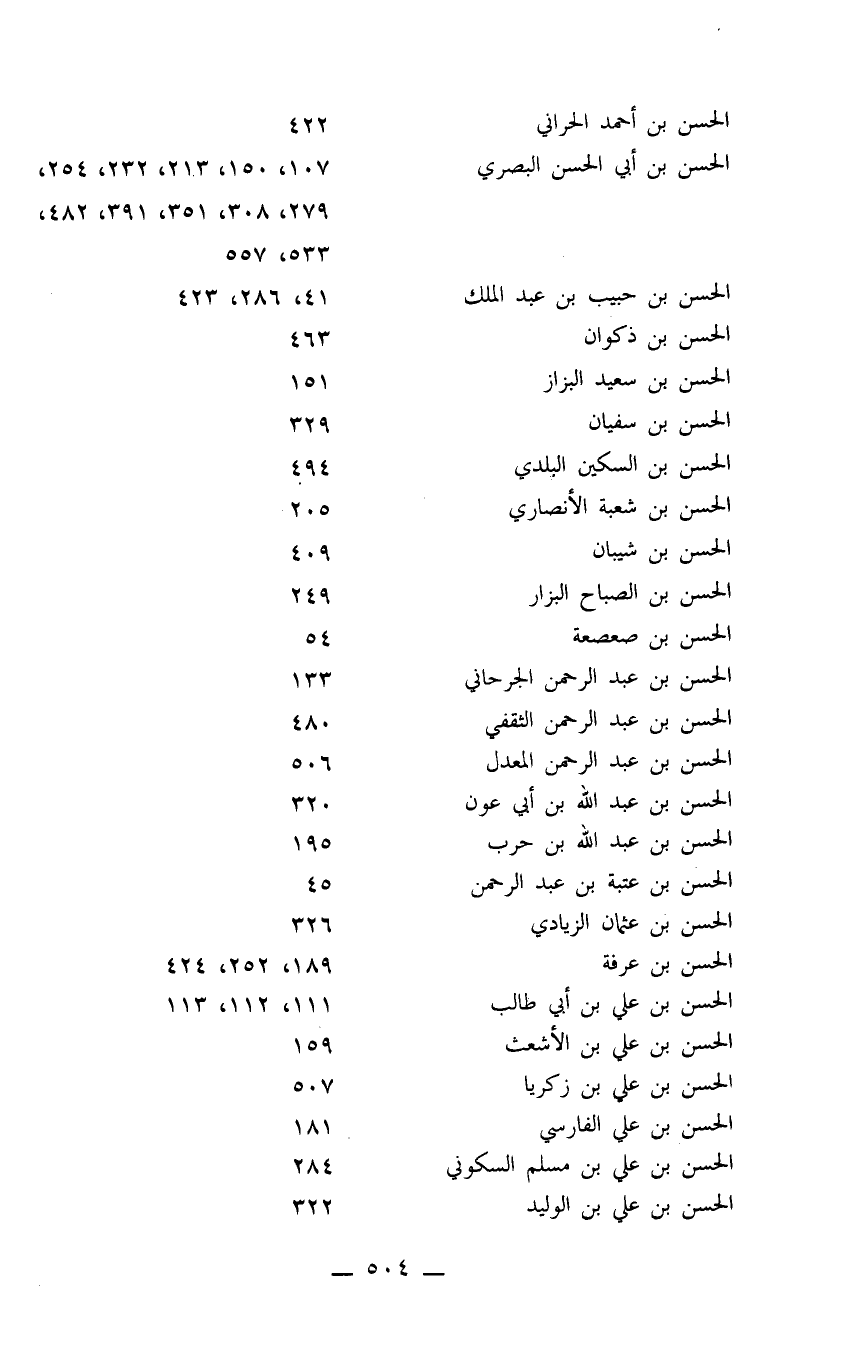 الحسن بن أحمد الحراني ٤٢٢
الحسن بن أبي الحسن البصري ١٠٧، ١٥٠، ٢١٣، ٢٣٢، ٢٥٤،
٢٧٩، ٣٠٨، ٣٥١، ٣٩١، ٤٨٢،
٥٣٣، ٥٥٧
الحسن بن حبيب بن عبد الملك ٤١، ٢٨٦، ٤٢٣
الحسن بن ذكوان ٤٦٣
الحسن بن سعيد البزاز ١٥١
الحسن بن سفيان ٣٢٩
الحسن بن السكين البلدي ٤٩٤
الحسن بن شعبة الأنصاري ٢٠٥
الحسن بن شيبان ٤٠٩
الحسن بن الصباح البزار ٢٤٩
الحسن بن صعصعة ٥٤
الحسن بن عبد الرحمن الجرحاني ١٣٣
الحسن بن عبد الرحمن الثقفي ٤٨٠
الحسن بن عبد الرحمن المعدل ٥٠٦
الحسن بن عبد الله بن أبي عون ٣٢٠
الحسن بن عبد الله بن حرب ١٩٥
الحسن بن عتبة بن عبد الرحمن ٤٥
الحسن بن عثمان الزيادي ٣٢٦
الحسن بن عرفة ١٨٩، ٢٥٢، ٤٢٤
الحسن بن علي بن أبي طالب ١١١، ١١٢، ١١٣
الحسن بن علي بن الأشعث ١٥٩
الحسن بن علي بن زكريا ٥٠٧
الحسن بن علي الفارسي ١٨١
الحسن بن علي بن مسلم السكوني ٢٨٤
الحسن بن علي بن الوليد ٣٢٢
— ٥٠٤ —